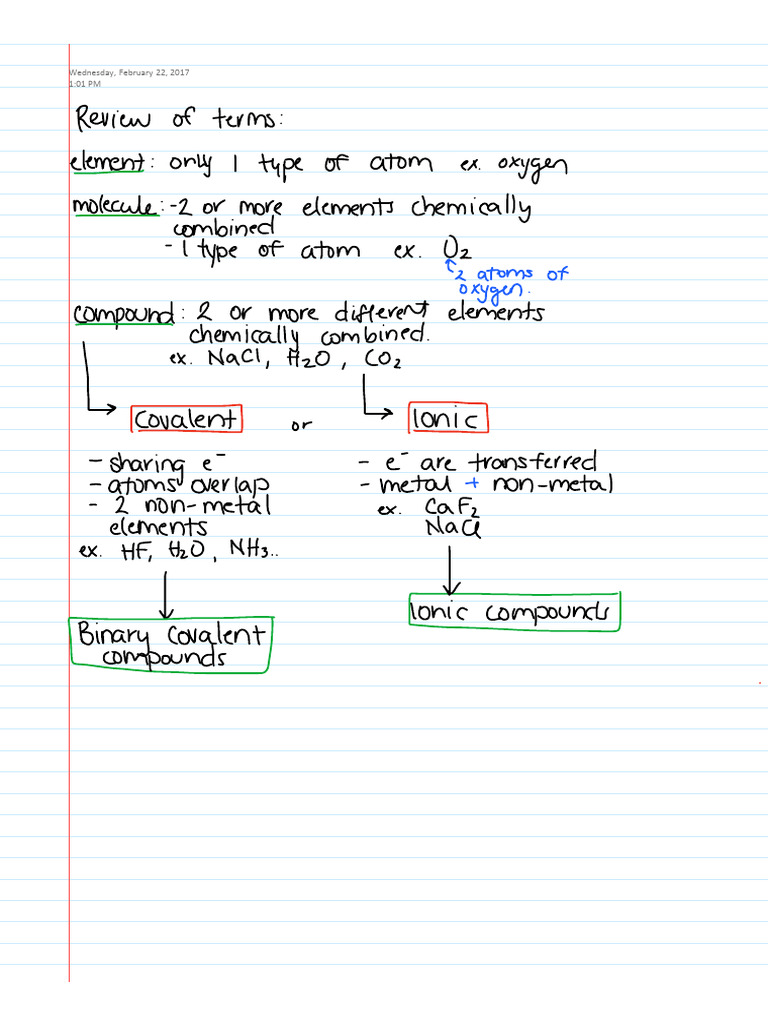 Wednesday, February 22, 2017
1:01 PM
Review of terms:
element: only 1 type of atom ex. oxygen
molecule: -2 or more elements chemically
combined
- 1 type of atom ex. O₂
2 atoms of
oxygen.
compound: 2 or more different elements
chemically combined.
ex. NaCl, H₂O, CO₂
Covalent or Ionic
- sharing e⁻
- atoms overlap
- 2 non-metal
elements
ex. HF, H₂O, NH₃..
- e⁻ are transferred
- metal + non-metal
ex. CaF₂
NaCl
Binary covalent
compounds
Ionic compounds